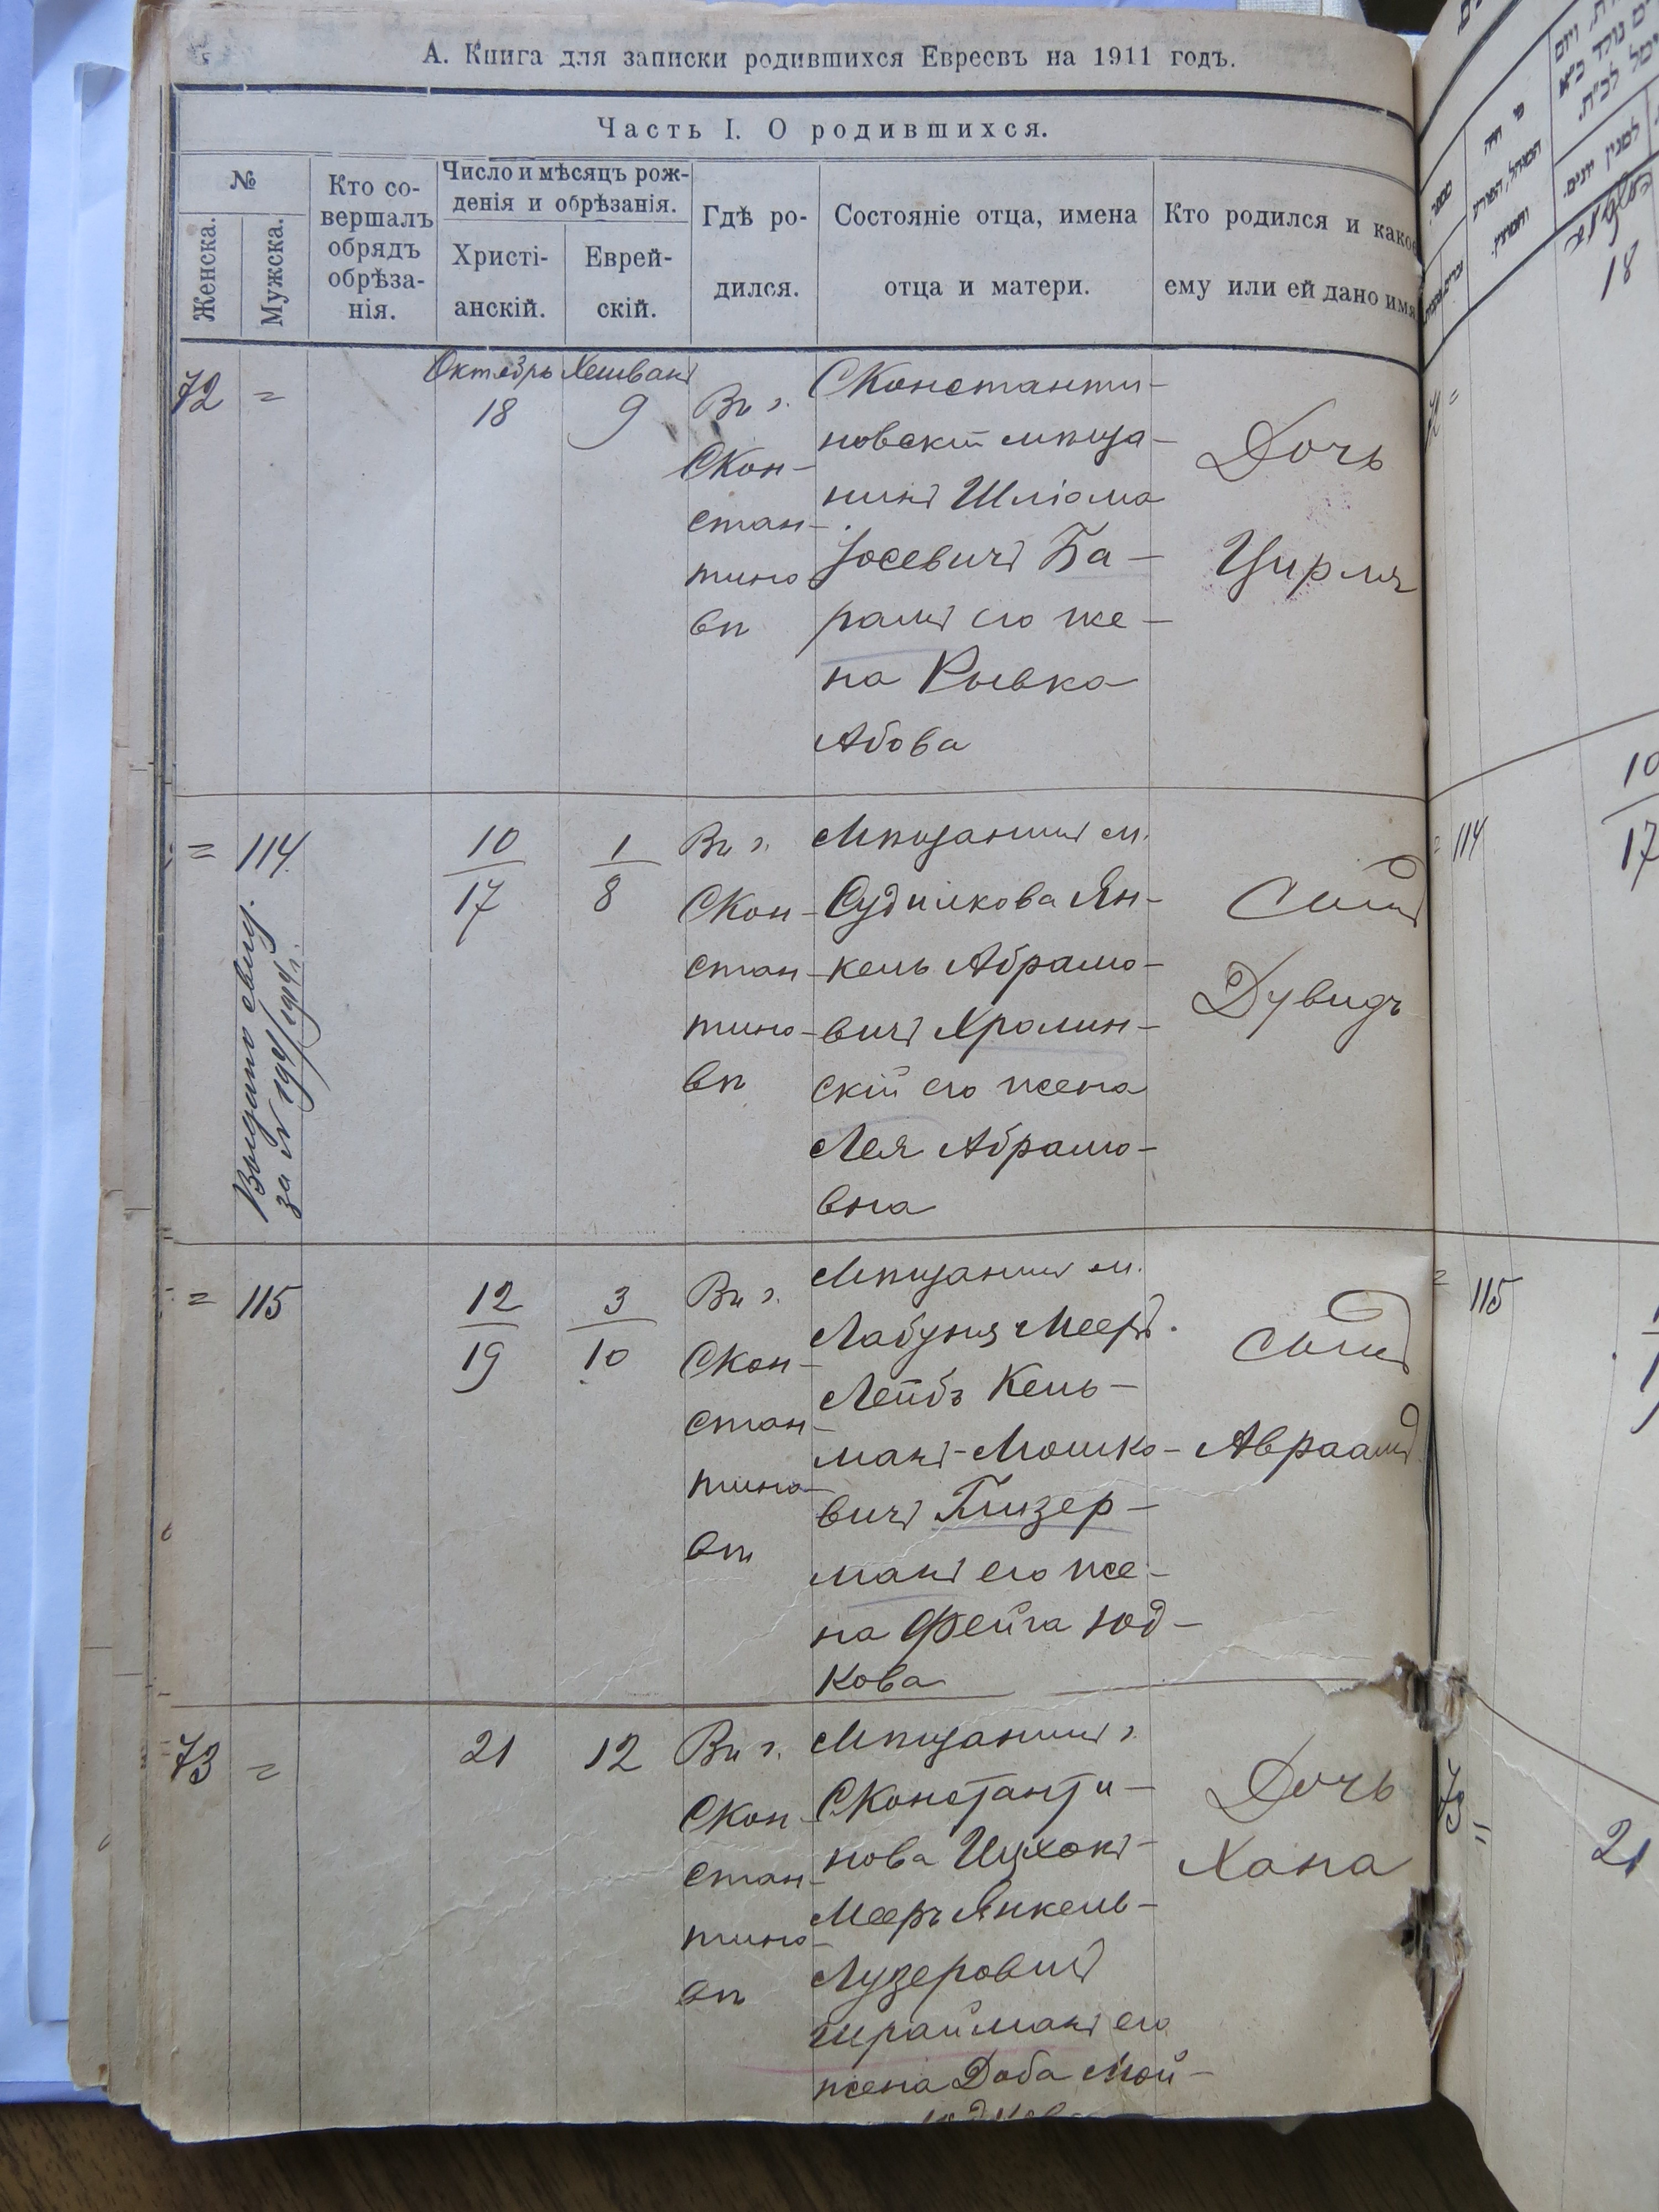 А. Книга для записки родившихся Евреевъ на 1911 годъ.
Часть I. О родившихся.
№
Женска.
Мужска.
Кто со-
вершалъ
обрядъ
обрѣза-
нія.
Число и мѣсяцъ рож-
денія и обрѣзанія.
Христі-
анскій.
Еврей-
скій.
Гдѣ ро-
дился.
Состояніе отца, имена
отца и матери.
Кто родился и какое
ему или ей дано имя
72 =
Октябрь Хешванъ
18 9
Въ г.
СКон-
стан-
тино
вѣ
СКонстанти-
новскій мѣща-
нинъ Шліома
Іосевичъ Ба-
рамъ его же-
на Рывка
Абова
Дочь
Цирля
= 114
Выдано свид.
10
17
1
8
Въ г.
СКон-
стан-
тино-
вѣ
Мѣщанинъ м.
Судилкова Ян-
кель Абрамо-
вичъ Хролин-
скій его жена
Лея Абрамо-
вна
Сынъ
Дувидъ
= 115
12
19
3
10
Въ г.
СКон-
стан-
тино-
вѣ
Мѣщанинъ м.
Лабуня Мееръ
Лейбъ Кель-
манъ-Мошко-
вичъ Глизер-
манъ его же-
на Фейга Юд-
кова
Сынъ
Авраамъ
73 =
21 12
Въ г.
СКон-
стан-
тино-
вѣ
Мѣщанинъ г.
СКонстанти-
нова Ицхокъ-
Мееръ Янкель-
Лузеровичъ
Шрайманъ его
жена Доба Мой-
Дочь
Хана
18
10
17
114
115
73 =
21